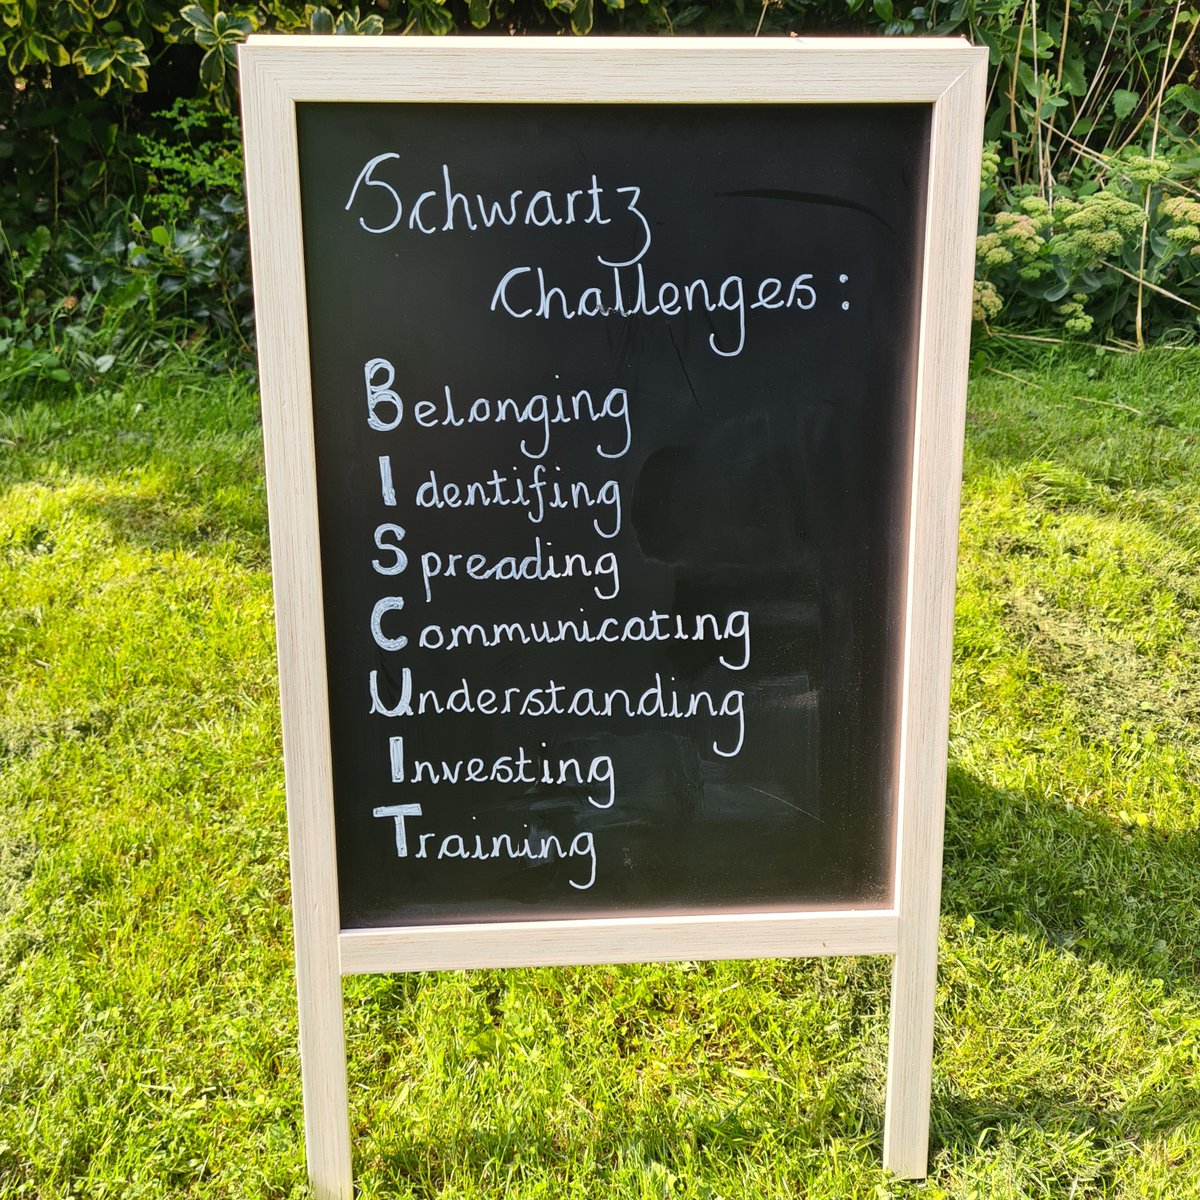 Schwartz
Challenges:
Belonging
Identifing
Spreading
Communicating
Understanding
Investing
Training